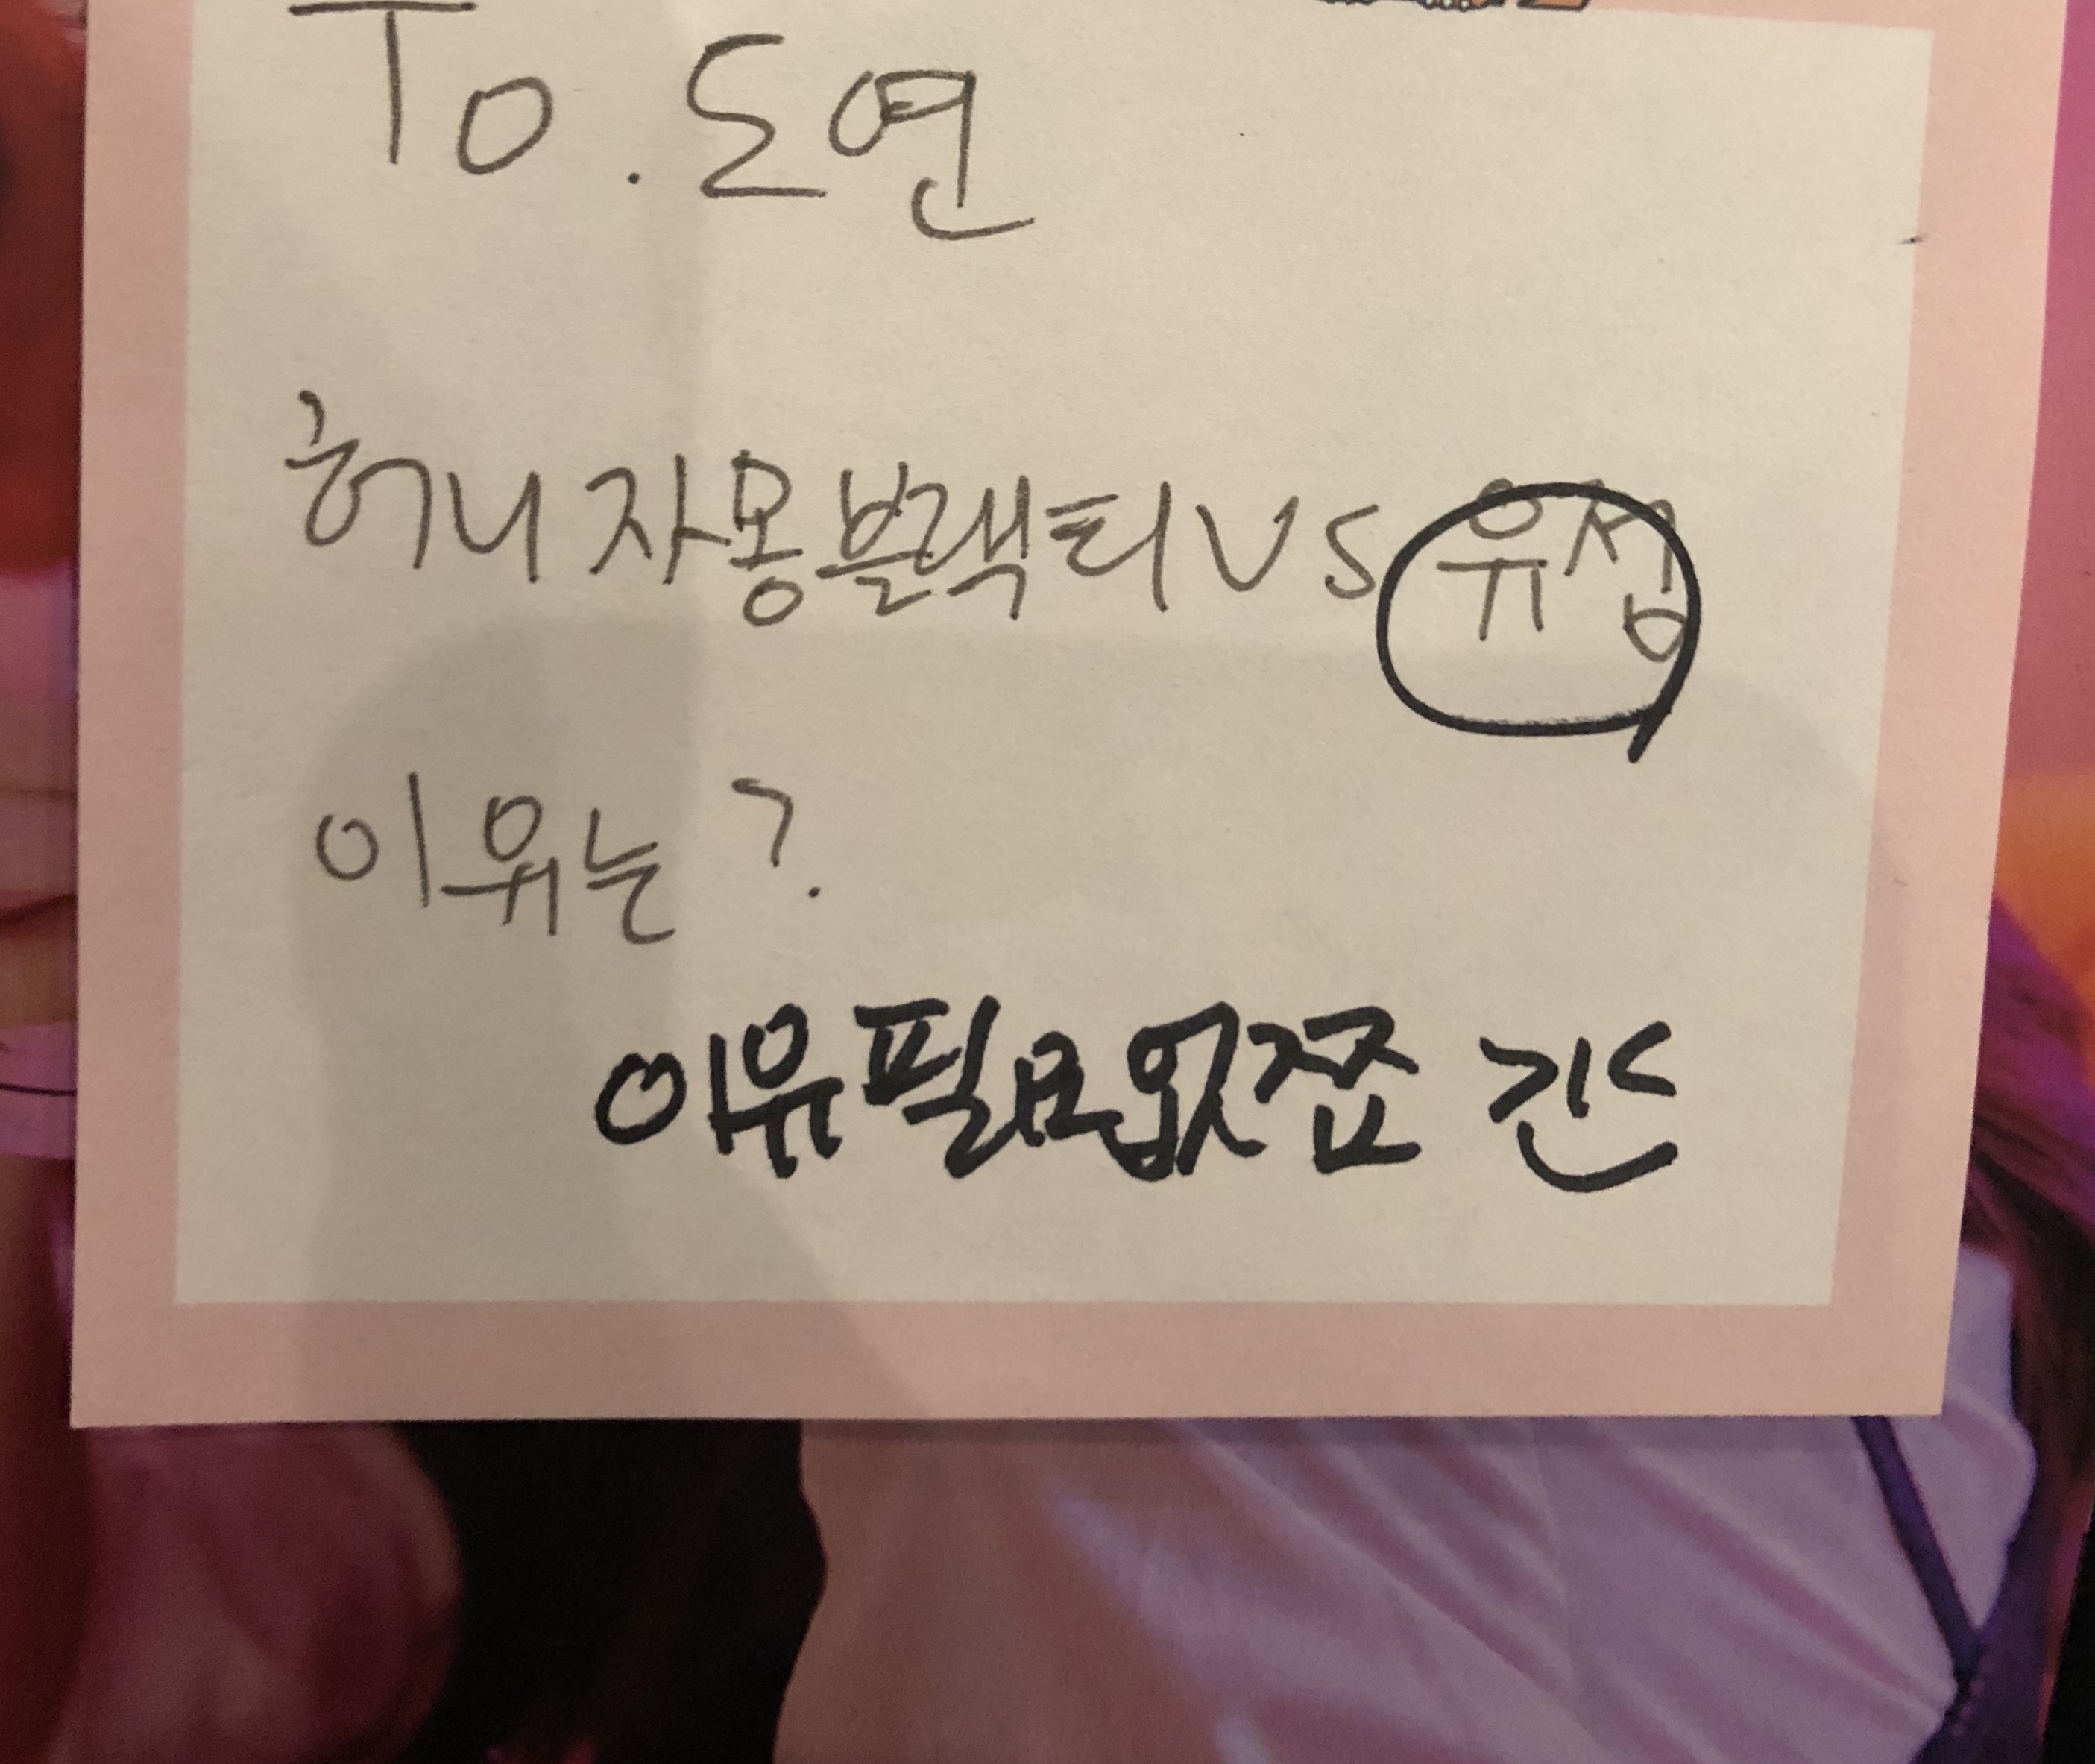 To. 도연
허니자몽블랙티 VS 유정
이유는?
이유필요없쬬